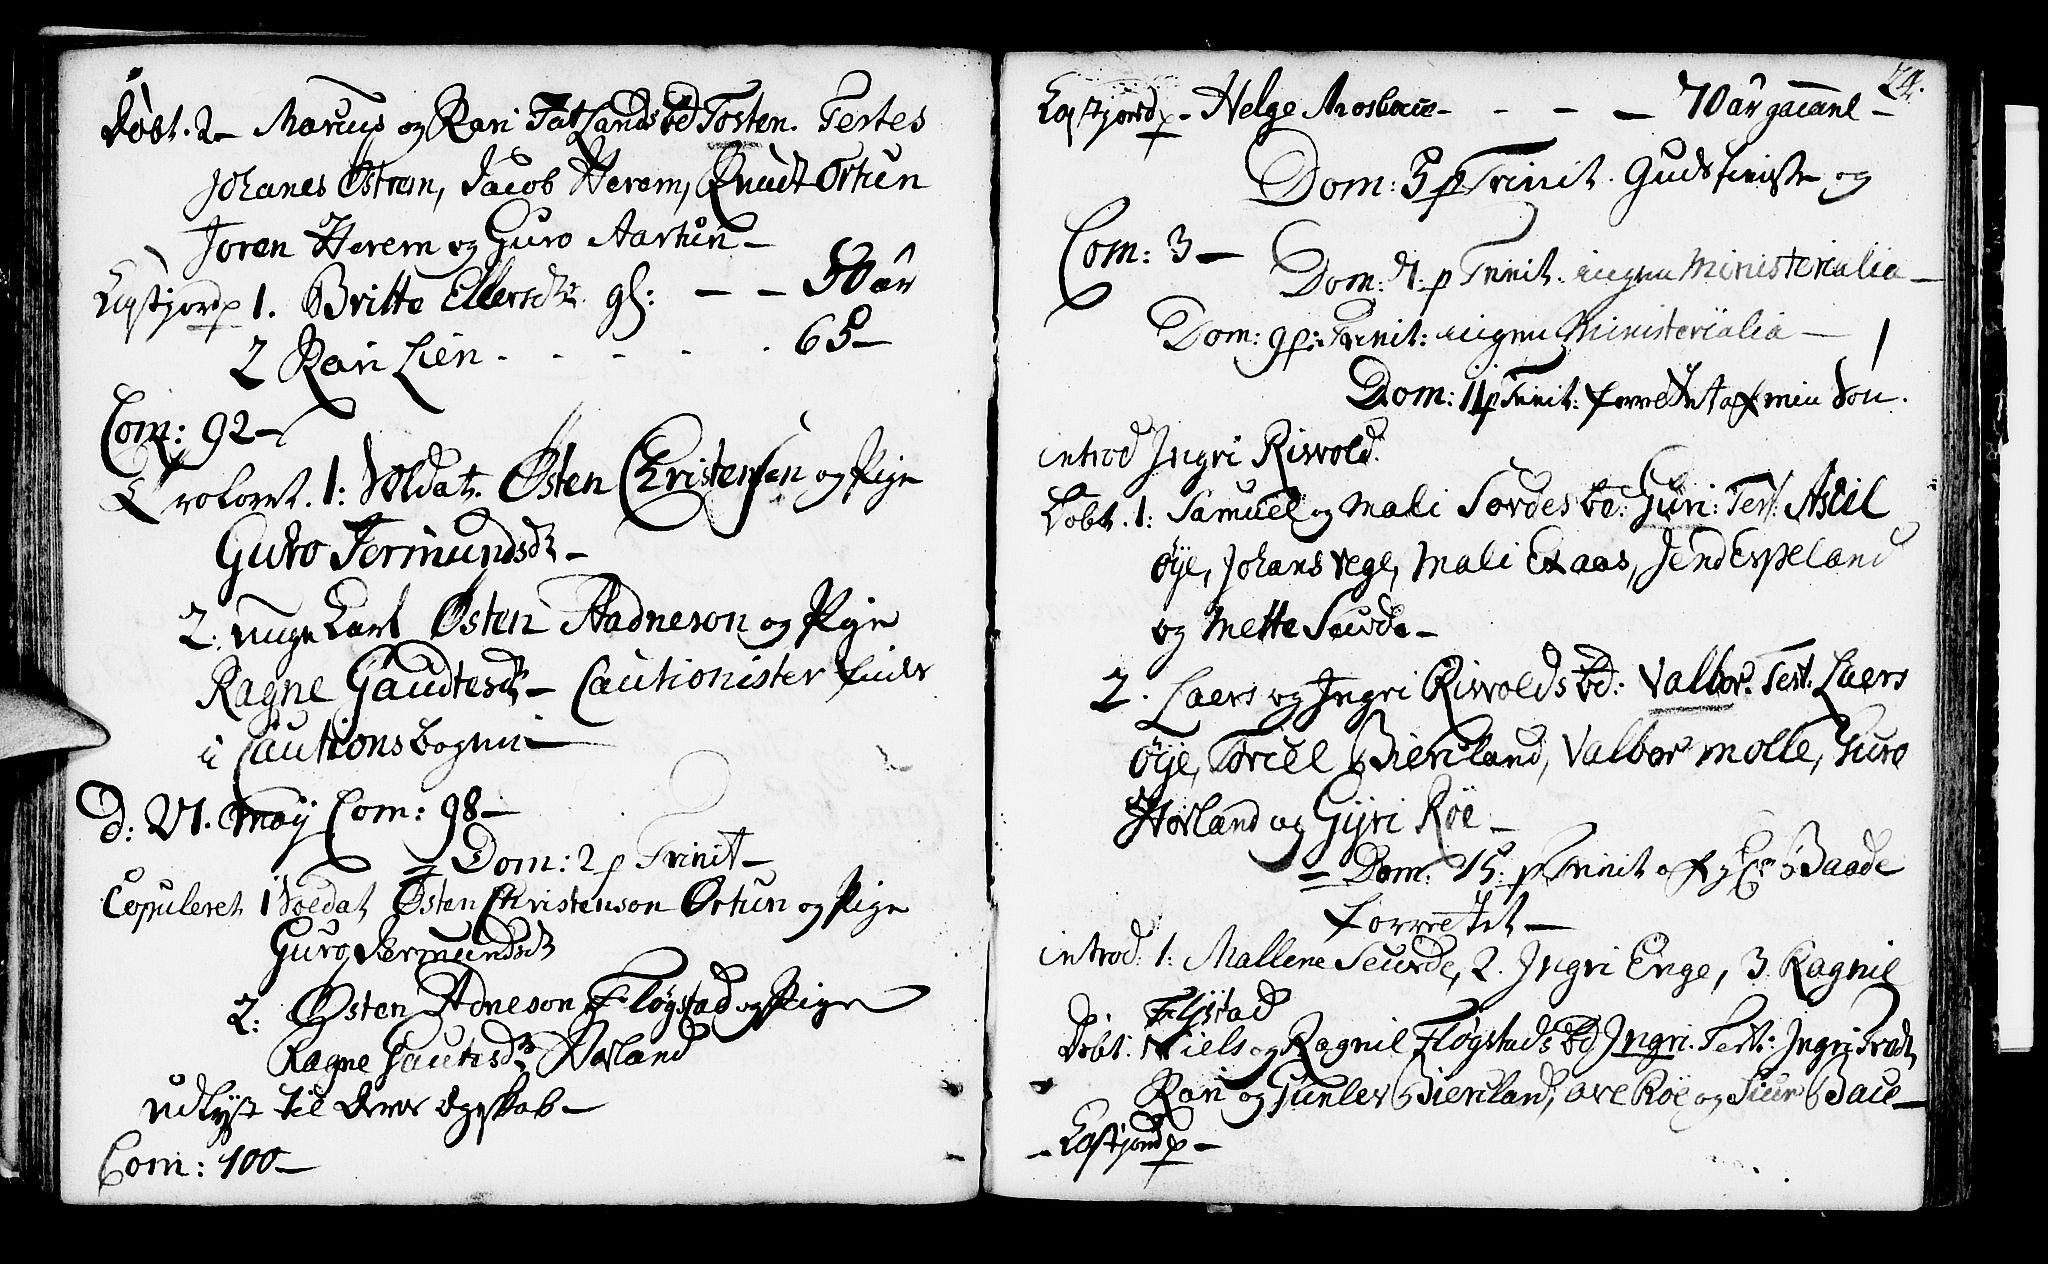 Døbt. 2 - Marcus og Kari Tatlands bd Tosten. Testes
Johanes Østrem, Jacob Herem, Knudt Ortun
Joren Herem og Guro Aartun -
1. Britte Ellersdr. gl: - - 50 år
2 Kari Lien - - - - - 65 -
Com: 92 -
Troloret. 1: Soldat. Østen Christensen og Pige
Guro Jermundsdr -
2. unge Karl Østen Aadneson og Pige
Ragne Gaudtesdr - Cautionister findes
i Cautions bogen -
d: 21. Maij Com: 98 -
= Dom: 2 p Trinit -
Copuleret 1 Soldat Østen Christenson Ortun og Pige
Guro Jermundsdr
2. Østen Adneson Fløgstad og Pige
Ragne Gautesdr Havland
udlyst til deres Egteskab -
Com: 100 -
74.
Helge Mosbau - - - - 70 år gammel -
Dom: 5 p Trinit. Gudstieniste og
Com: 3 -
Dom: 7. p Trinit. ingen Ministerialia -
Dom: 9 p: Trinit: ingen Ministerialia -
Dom: 11 p Trinit: forrettet af min Søn.
introd Ingri Risvold.
Døbt. 1: Samuel og Mali Sordes bd: Guri: Test: Askil
Øye, Johans Vege, Mali Exaas, Jend Espeland
og Mette Seurde -
2. Laers og Ingri Risvolds bd: Valbor. Test. Laers
Øye, Toriel Bierland, Valbor Molle, Guro
Hovland og Gyri Røe -
= Dom: 15: p Trinit af Hr Baade
forrettet -
introd: 1: Mallene Seurde, 2. Ingri Enge, 3. Ragnil
Flystad
Døbt. Niels og Ragnil Fløgstads bd Ingri. Test: Ingri
Kari og Gunlev Bierland, Are Røe og Siur Baue -